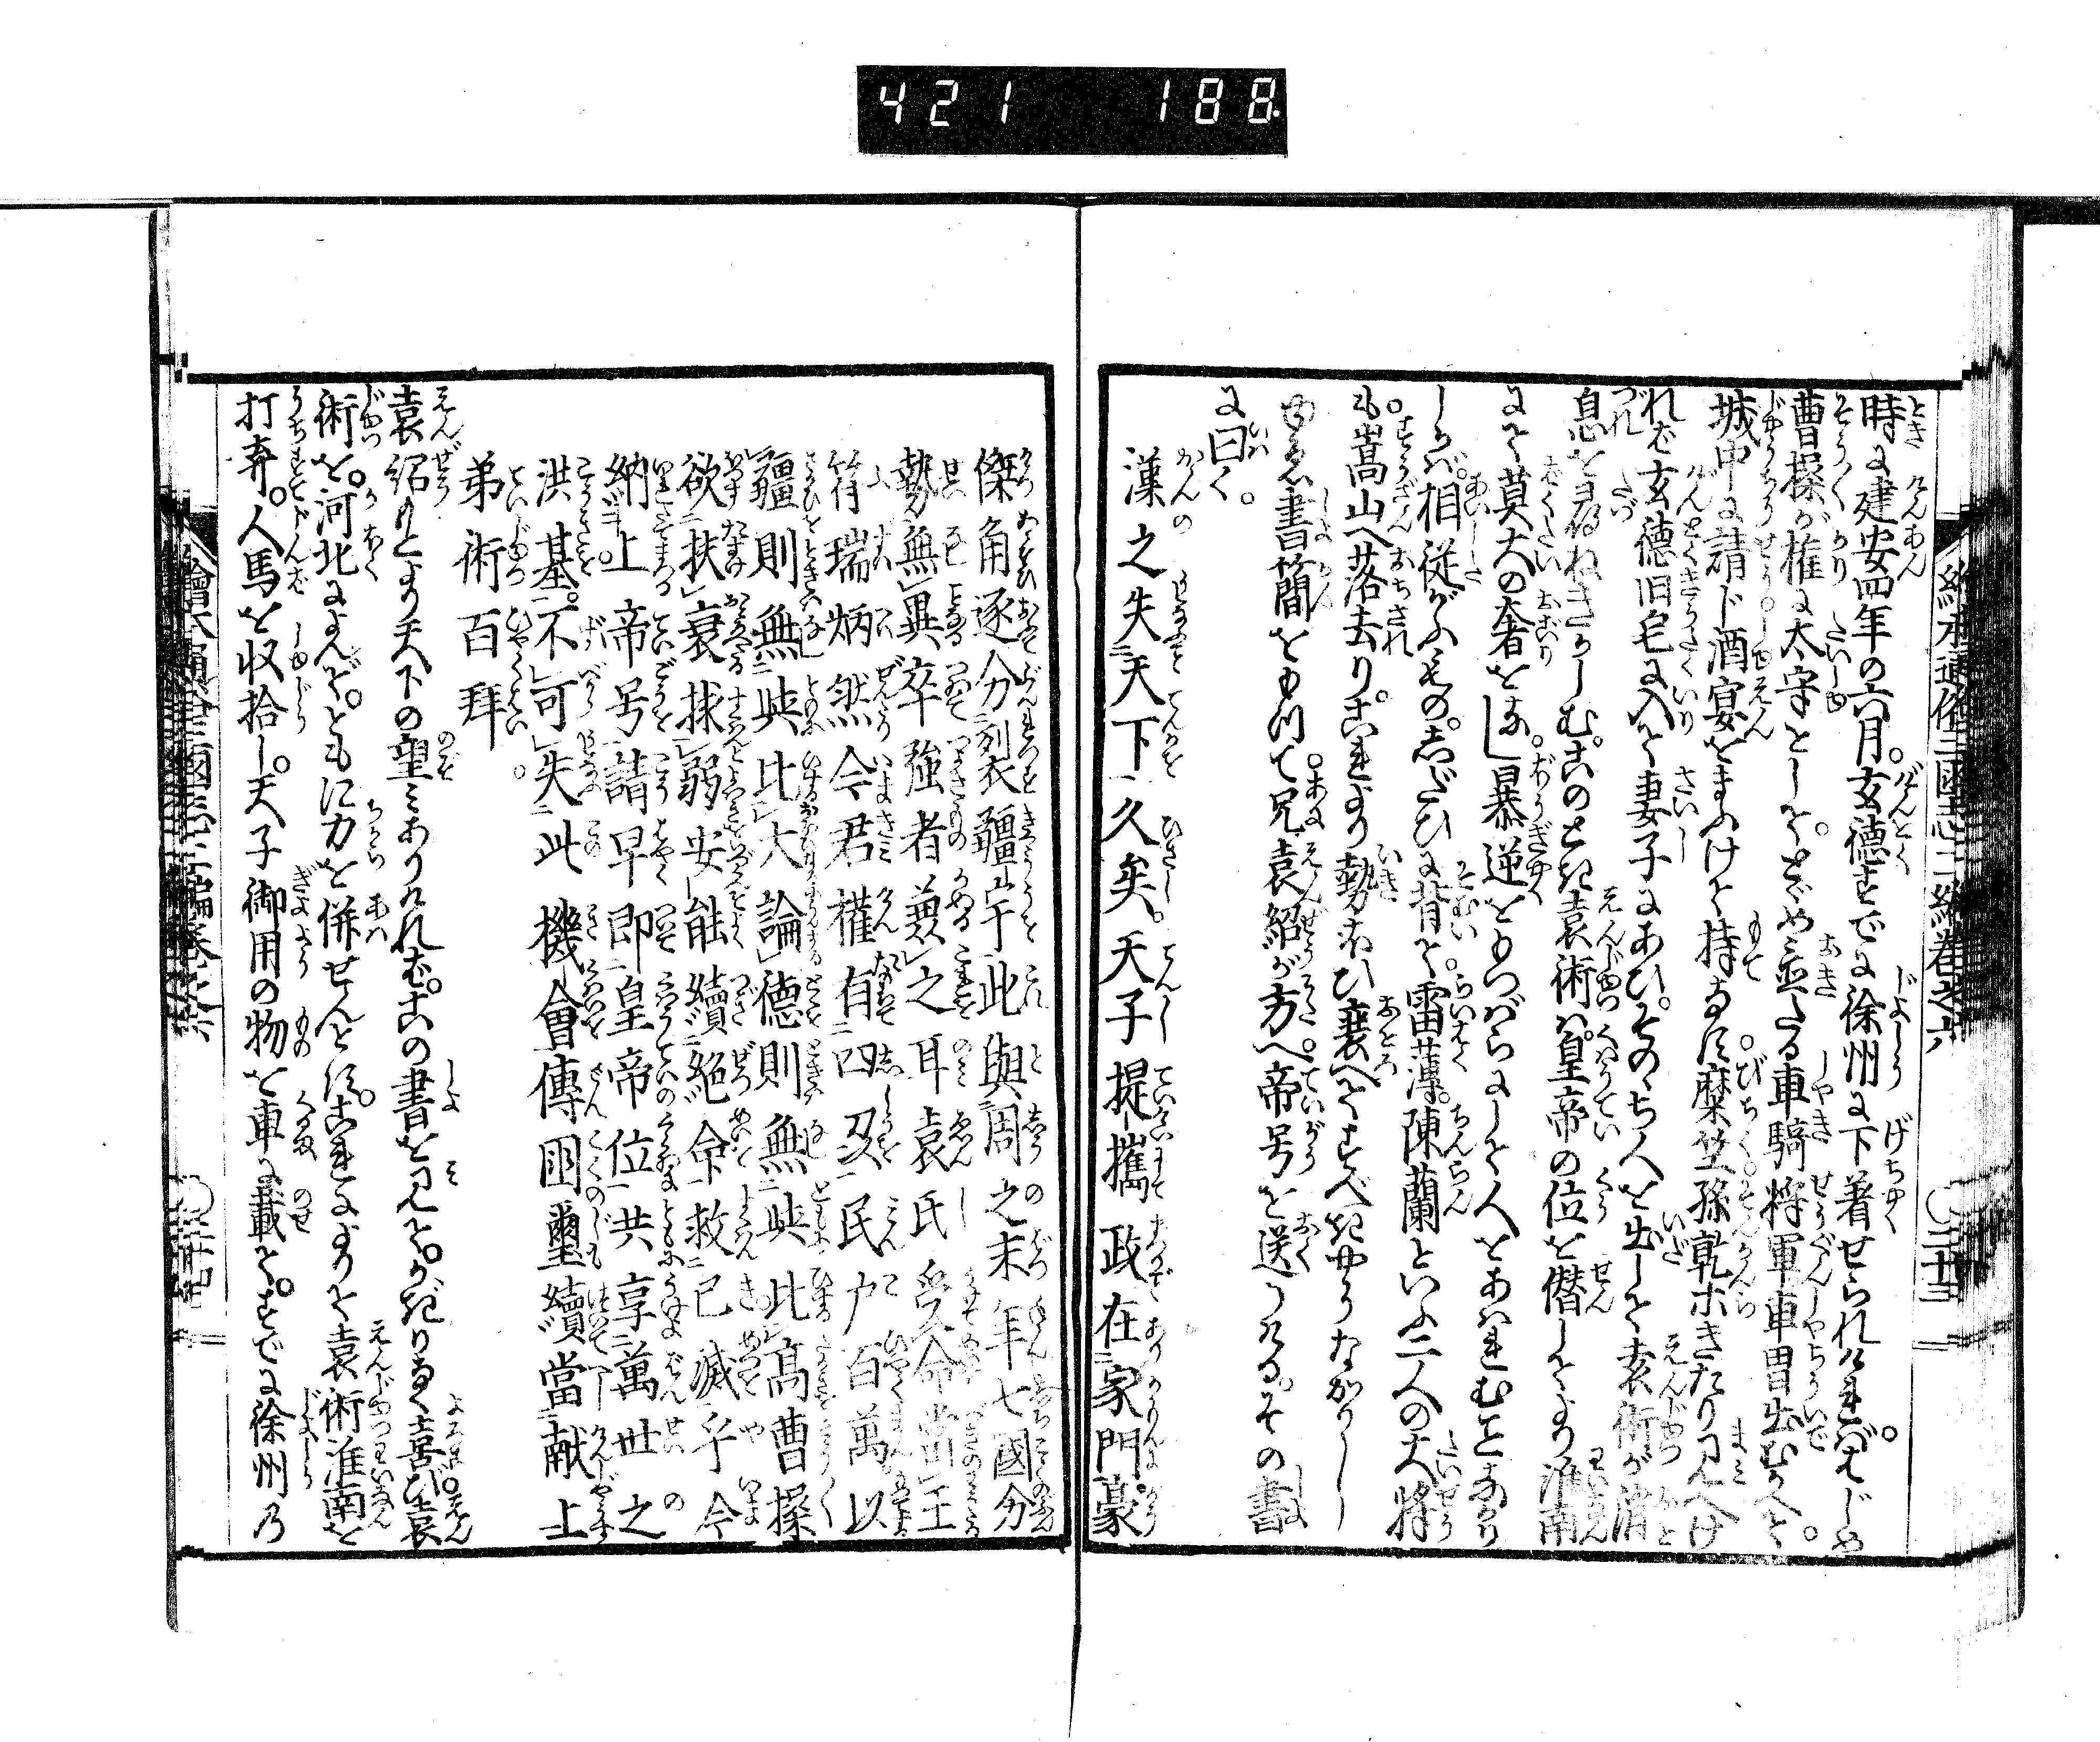 421 188
繪本通俗三國志三編卷之六
時に建安四年の六月。玄德すでに徐州に下着せられければ。はじめ
曹操が権に太守として。とゞめ置たる車騎將軍車冑出むかへて。
城中に請じ酒宴をまふけて持なす。糜竺孫乾ホきたり見へけ
れば玄德旧宅に入て妻子にあひ。そのゝち人を出して袁術が消
息を尋ねきかしむ。このとき袁術ハ皇帝の位を僣してより淮南
にて莫大の奢をなし。暴逆をもつぱらにして人をあハれむことなかり
しかバ。相從がふもの。しだひに背て。雷薄。陳蘭といふ二人の大将
も。嵩山へ落去り。これより勢ほひ衰へてすべきやうなかりし
ゆゑ書簡をもつて。兄袁紹が方へ。帝号を送りける。その書
に曰く。
漢之失天下久矣。天子提攜政在家門。豪
傑角逐分裂疆宇此與周之末年七國分
勢無異卒強者兼之耳袁氏受命當王
符瑞炳然今君權有四州民戸百萬以
疆則無與比大論德則無與比高曹操
欲扶衰拯弱安能續絶命救已滅乎今
納上帝号請早即皇帝位共享萬世之
洪基。不可失此機會傳國璽續當献上
弟術百拜
袁紹もとより天下の望ミありければ。この書を見て。かぎりなく喜び。袁
術を。河北によんで。ともに力を併せんとす。これによりて袁術淮南を
打弃。人馬を収拾し。天子御用の物を車に載て。すでに徐州乃
繪本通俗三國志三編卷之六